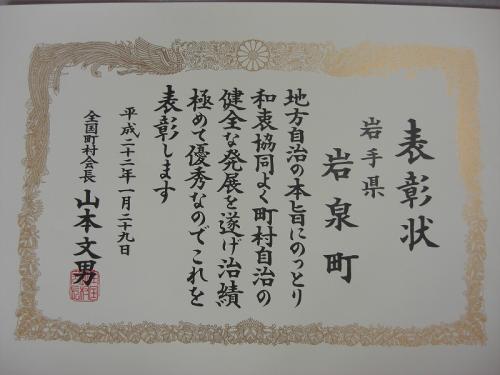 表彰状
岩手県
岩泉町
地方自治の本旨にのっとり
和衷協同よく町村自治の
健全な発展を遂げ治績
極めて優秀なのでこれを
表彰します
平成二十二年一月二十九日
全国町村会長 山本文男